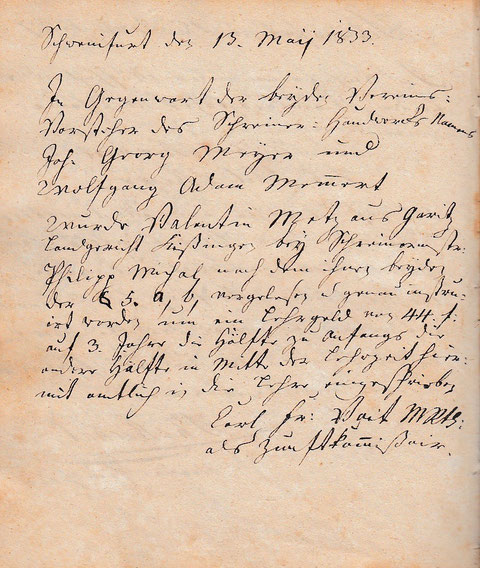 Schweinfurt den 13. Maij 1833.
In Gegenwart der beyden Vereins=
Vorsteher des Schreiner=Handwerks Namens
Joh. Georg Meyer und
Wolfgang Adam Memert
wurde Valentin Metz aus Garitz
Landgericht Kißingen bey Schreinermstr:
Philipp Michal nach dem ihnen beyden
der § 5. a, b, vorgelesen & genau instru=
irt worden um ein Lehrgeld von 44 f:
auf 3. Jahre die Hälfte zu Anfangs die
andere Hälfte in Mitte der Lehrzeit hier=
mit amtlich in die Lehre eingeschrieben
Carl Fr: Voit
als Zunftkommißair.